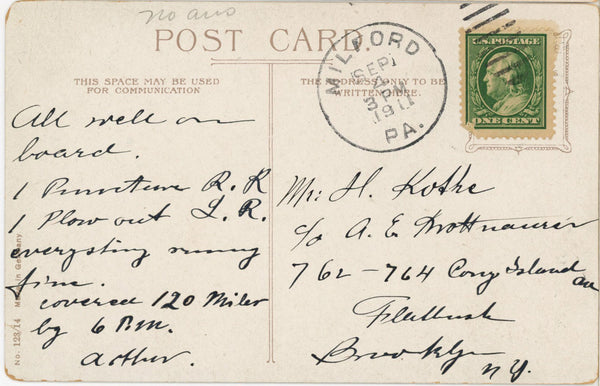 no ans
POST CARD
THIS SPACE MAY BE USED
FOR COMMUNICATION
THE ADDRESS ONLY TO BE
WRITTEN HERE.
MILFORD
SEP
3 PM
1911
PA.
U.S. POSTAGE
ONE CENT
All well on
board.
1 Puncture R. R
1 Blow out L. R.
everything runing
fine.
covered 120 Miles
by 6 P.M.
Arthur.
Mr. H. Kothe
c/o A. E.
762-764 Cony Island av
Flatbush
Brooklyn
N.Y.
No. 123/14 Made in Germany